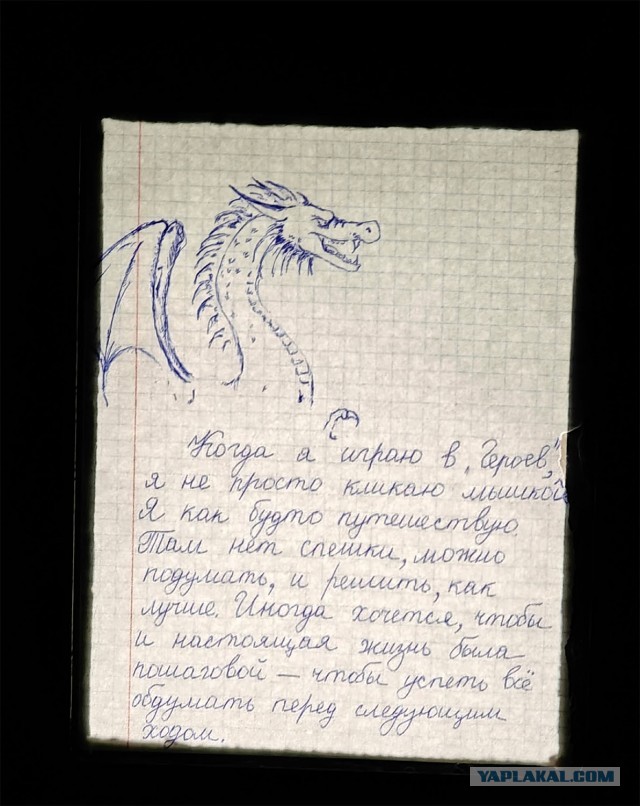 Когда я играю в „Героев",
я не просто кликаю мышкой
Я как будто путешествую.
Там нет спешки, можно
подумать, и решить, как
лучше. Иногда хочется, чтобы
и настоящая жизнь была
пошаговой — чтобы успеть всё
обдумать перед следующим
ходом.
YAPLAKAL.COM